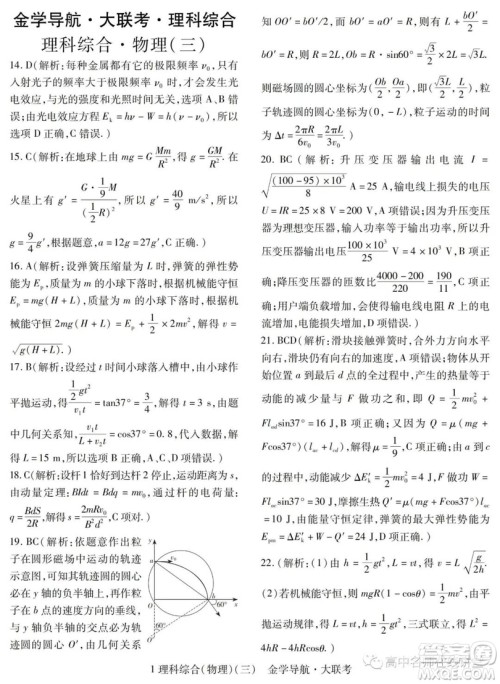 金学导航·大联考·理科综合
理科综合·物理(三)
14. D(解析:每种金属都有它的极限频率 ν₀,只有
入射光子的频率大于极限频率 ν₀ 时,才会发生光
电效应,与光的强度和光照时间无关,选项 A、B 错
误;由光电效应方程 Eₖ = hν − W = h(ν − ν₀),所以
选项 D 正确,C 错误.)
15. C(解析:在地球上由 mg = G Mm/R²,得 g = GM/R². 在
火星上有 g′ = G·(1/9)M/(½R)²,所以 g′ = 40/9 m/s²,所以
g = 9/4 g′,根据题意,a = 12g = 27g′,C 正确.)
16. A(解析:设弹簧压缩量为 L 时,弹簧的弹性势
能为 Eₚ,质量为 m 的小球下落时,根据机械能守恒
Eₚ = mg(H + L),质量为 m 的小球下落时,根据机
械能守恒 2mg(H + L) = Eₚ + ½ × 2mv²,解得 v =
√g(H + L).)
17. B(解析:设经过 t 时间小球落入槽中,由小球作
平抛运动,得 ½gt²/v₁t = tan37° = 3/4,解得 t = 3 s,由题
中几何关系知,v₁t/L + v₂t = cos37° = 0.8,代入数据,解
得 L = 15 m,所以选项 B 正确,A、C、D 项错误.)
18. C(解析:设杆 1 恰好到达杆 2 停止,运动距离为 s,
由动量定理:BIdt = Bdq = mv₀,通过杆的电荷量:
q = BdS/2R,解得 s = 2mRv₀/B²d²,C 项对.)
19. BC(解析:依题意作出粒
子在圆形磁场中运动的轨迹
示意图,可知其轨迹圆的圆心
必在 y 轴的负半轴上,再作粒
子在 b 点的速度方向的垂线,
与 y 轴负半轴的交点必为轨
迹圆的圆心 O′,由几何关系
y
a
v₀
O
b
x
60°
60°
O′
知 OO′ = bO′/2,而 aO′ = bO′ = R,则有 L + bO′/2 =
bO′ = R,则 R = 2L,Ob = R·sin60° = √3/2 × 2L = √3L.
则磁场圆的圆心坐标为(Ob/2, Oa/2),即(√3L/2, L/2),粒
子轨迹圆的圆心坐标为(0, −L),粒子运动的时间
为 Δt = 2πR/6v₀ = 2πL/3v₀.)
20. BC(解析:升压变压器输出电流 I =
√(100 − 95) × 10³/8 A = 25 A,输电线上损失的电压
U = IR = 25 × 8 V = 200 V,A 项错误;因为升压变压
器为理想变压器,输入功率等于输出功率,所以升
压变压器输出电压 100 × 10³/25 V = 4 × 10³ V,B 项正
确;降压变压器的匝数比 4000 − 200/220 = 190/11,C 项正
确;用户端负载增加,会使得输电线电阻 R 上的电
流增加,电能损失增加,D 项错误.)
21. BCD(解析:滑块接触弹簧时,合外力方向水平
向右,滑块仍有向右的加速度,A 项错误;物体从开
始位置 a 到最后 d 点的全过程中,产生的热量等于
动能的减少量与 F 做功之和,即 Q = ½mv₀² +
sin37° = 16 J,B 项正确;又因为 Q = μ(mg +
Fcos37°)( + ),解得 μ = 1/9,C 项正确;由 a 到 c
的过程中,动能减少 = ½mv₀² = 4 J,F 做功 W =
sin37° = 30 J,摩擦生热 Q′ = μ(mg + Fcos37°)
= 10 J,由能量守恒定律,弹簧的最大弹性势能为
Eₚₘ = + W − Q′ = 24 J,D 项正确.)
22. (解析:(1)由 h = ½gt²,L = vt,得 v = L√g/2h.
(2)若机械能守恒,则 mgR(1 − cosθ) = ½mv²,由平
抛运动规律,得 L = vt,h = ½gt²,三式联立,得 L² =
4hR − 4hRcosθ.)
1 理科综合(物理)(三) 金学导航·大联考